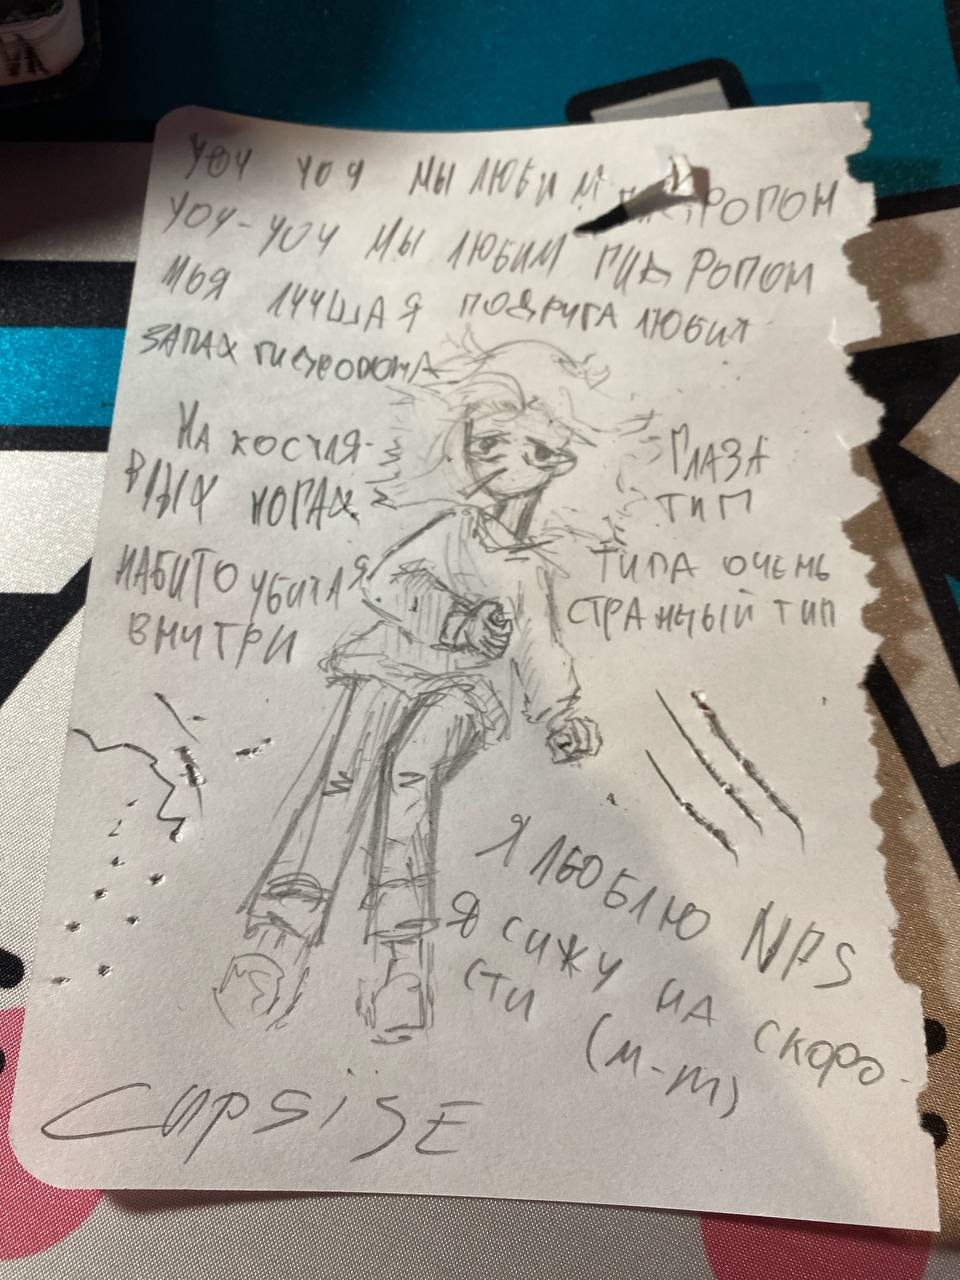 УОУ УОУ МЫ ЛЮБИМ РОПОН
УОУ-УОУ МЫ ЛЮБИМ ГИДРОПОМ
МОЯ ЛУЧШАЯ ПОДРУГА ЛЮБИТ
ЗАПАХ
НА КОСТЛЯ-
ВЫХ НОГАХ
НАБИТО УБИТАЯ
ВНУТРИ
ГЛАЗА
ТИП
ТИПА ОЧЕНЬ
СТРАННЫЙ ТИП
Я ЛЮБЛЮ NPS
Я СИЖУ НА СКОРО-
СТИ (м-м)
CUPSISE